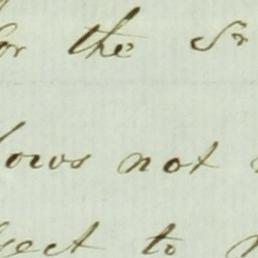 for the Sr
lows not
ject to